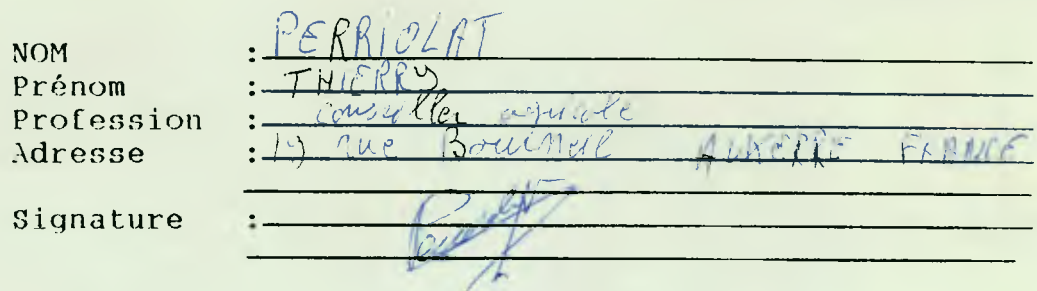 NOM : PERRIOLAT
Prénom : THIERRY
Profession : conseiller agricole
Adresse : rue AUXERRE FRANCE
Signature :